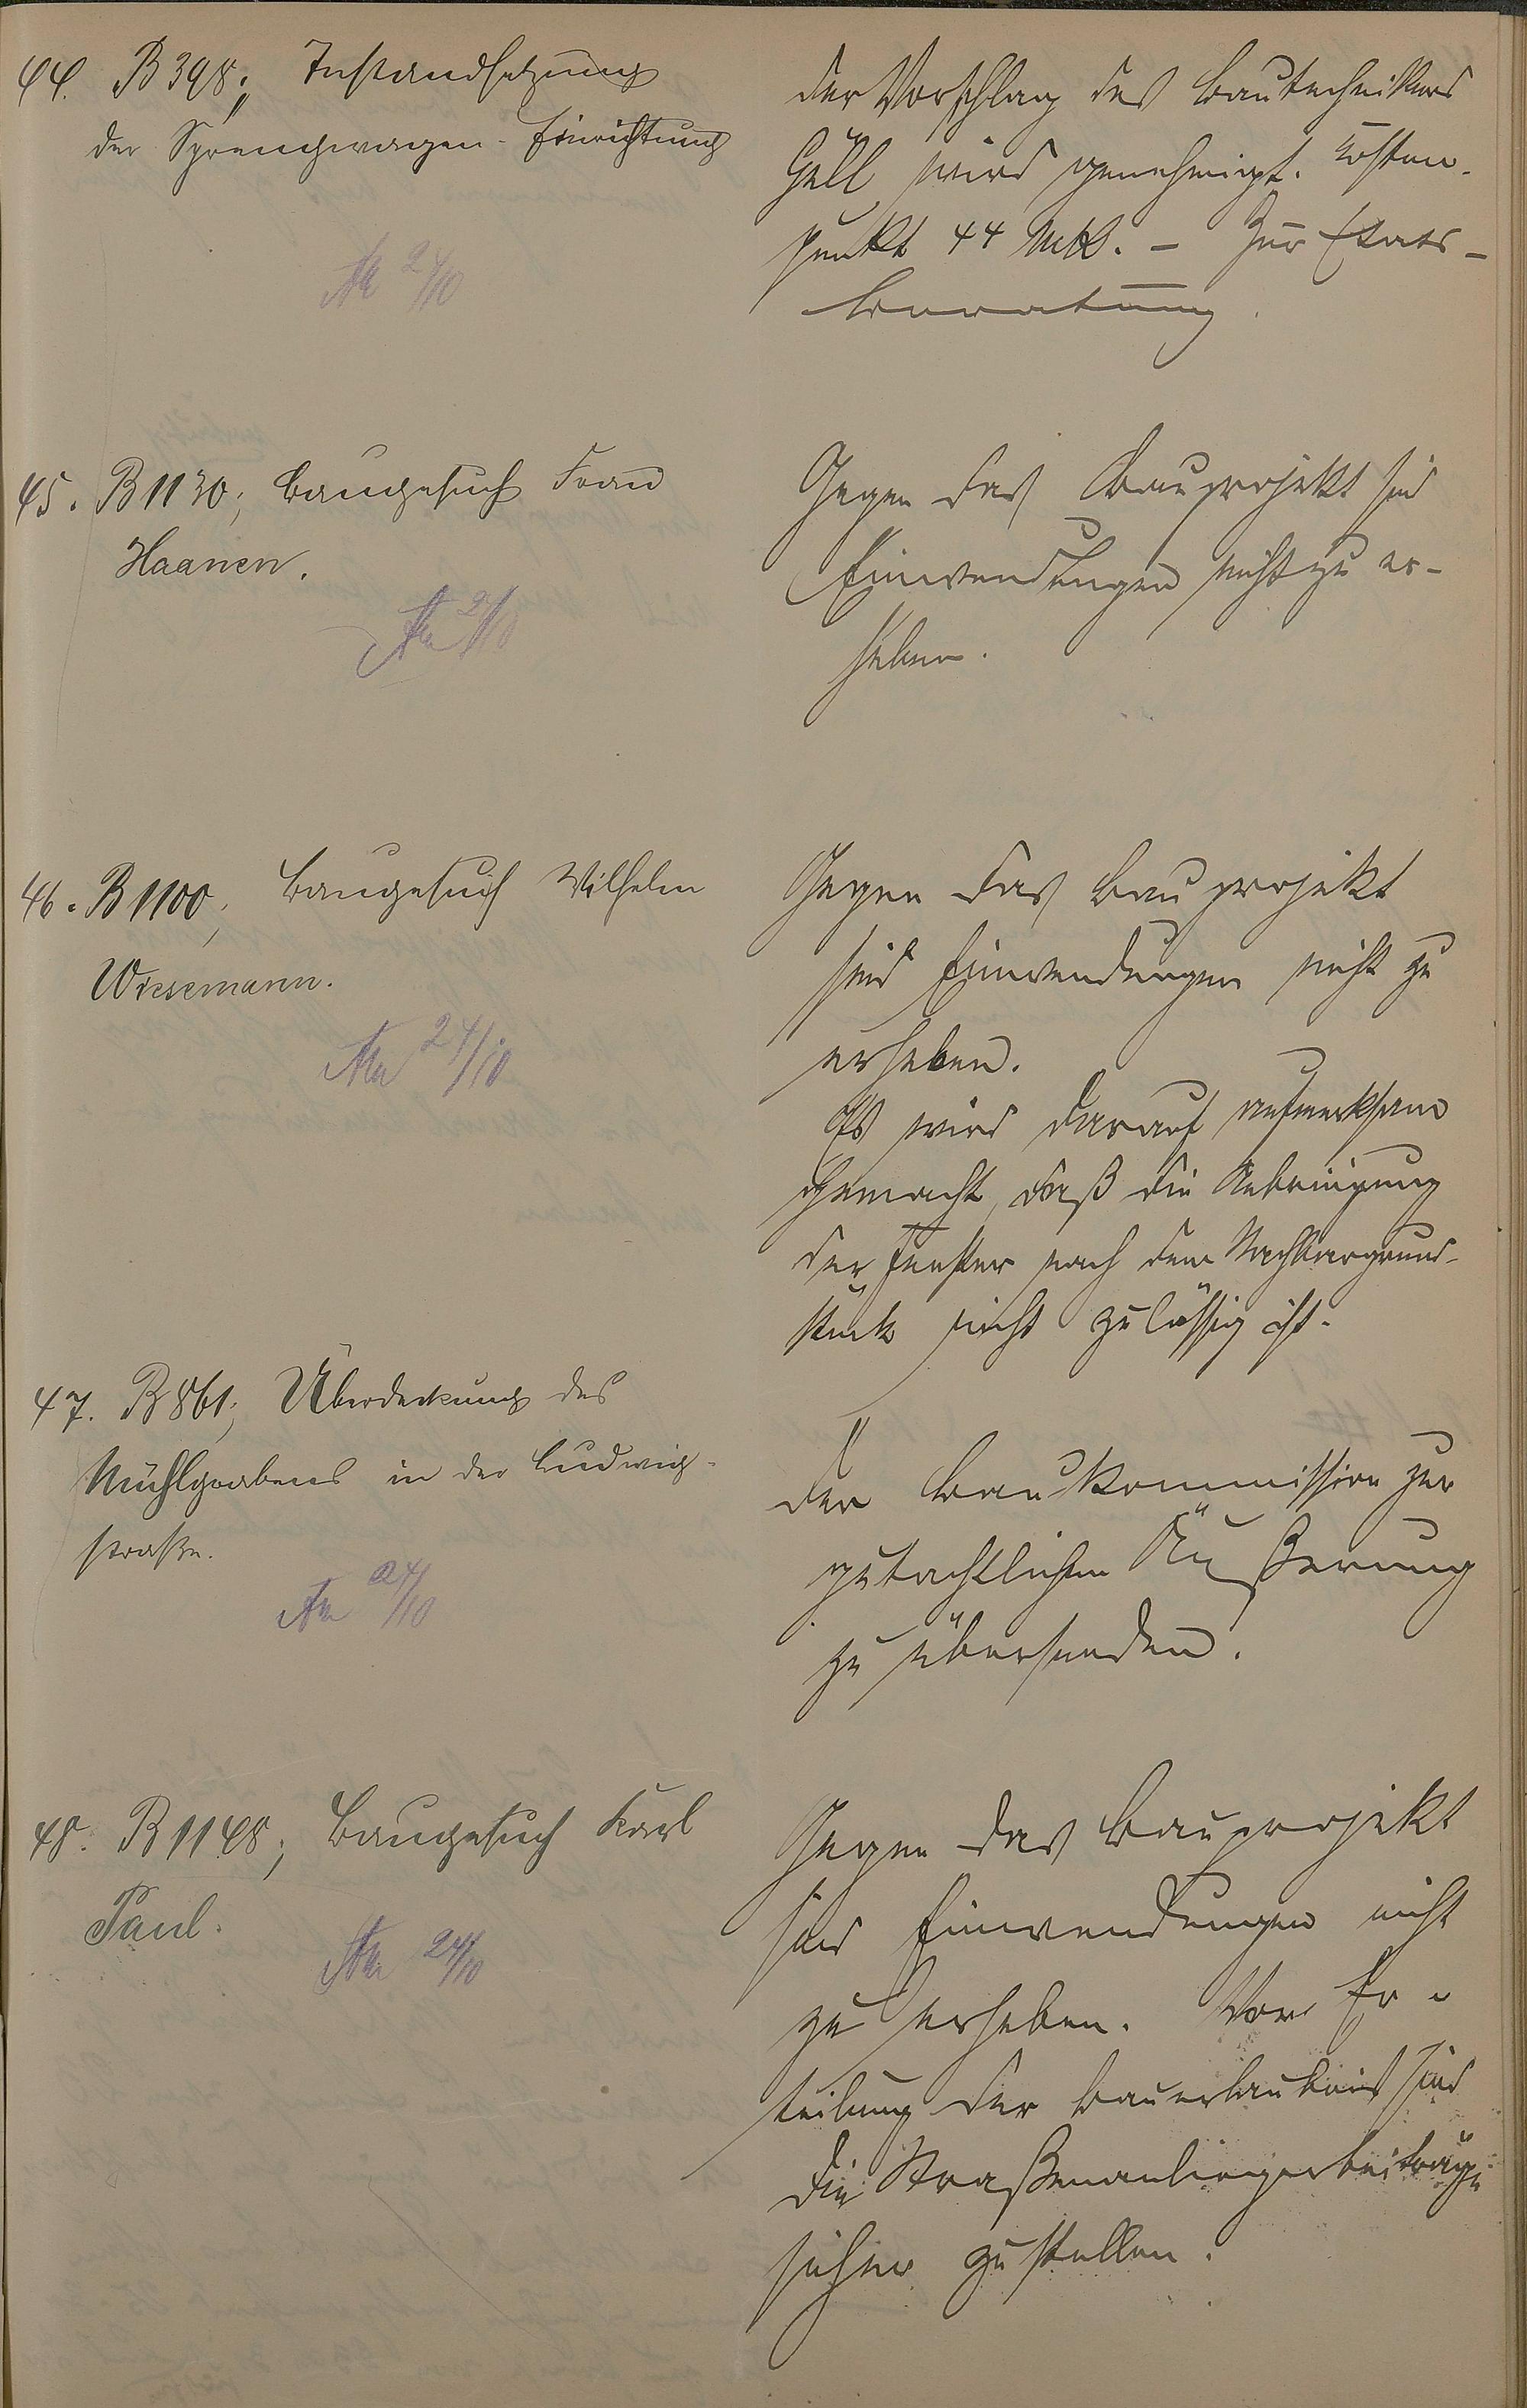 44. B 398; Instandsetzung
der Sprengwagen-Einrichtung
Der Vorschlag des Bautechnikers
Gell wird genehmigt. Kosten-
punkt 44 Mk. - Zur Etats-
beratung.
24/10
45. B 1130; Baugesuch Frau
Haanen.
Gegen das Bauprojekt sind
Einwendungen nicht zu er-
heben.
46. B 1100; Baugesuch Wilhelm
Wiesemann.
24/10
Gegen das Bauprojekt
sind Einwendungen nicht zu
erheben.
Es wird darauf aufmerksam
gemacht, daß die Anbringung
der Fenster nach dem Nachbargrund-
stück nicht zulässig ist.
47. B 861; Überdeckung des
Mühlgrabens in der Ludwig-
straße.
24/10
Der Baukommission zur
gutachtlichen Äußerung
zu übersenden.
48. B 1148; Baugesuch Karl
Paul.
24/10
Gegen das Bauprojekt
sind Einwendungen nicht
zu erheben. Vor Er-
teilung der Bauerlaubnis sind
die Straßenanliegerbeiträge
sicher zu stellen.